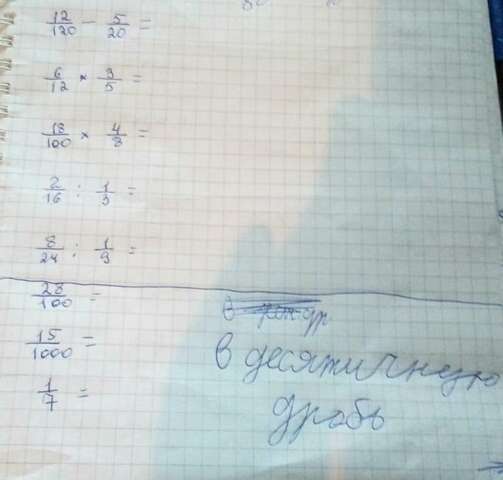 12/120 - 5/20 =
6/12 × 3/5 =
18/100 × 4/8 =
2/16 : 1/3 =
8/24 : 1/9 =
28/100 =
15/1000 =
1/7 =
в десятичную
дробь